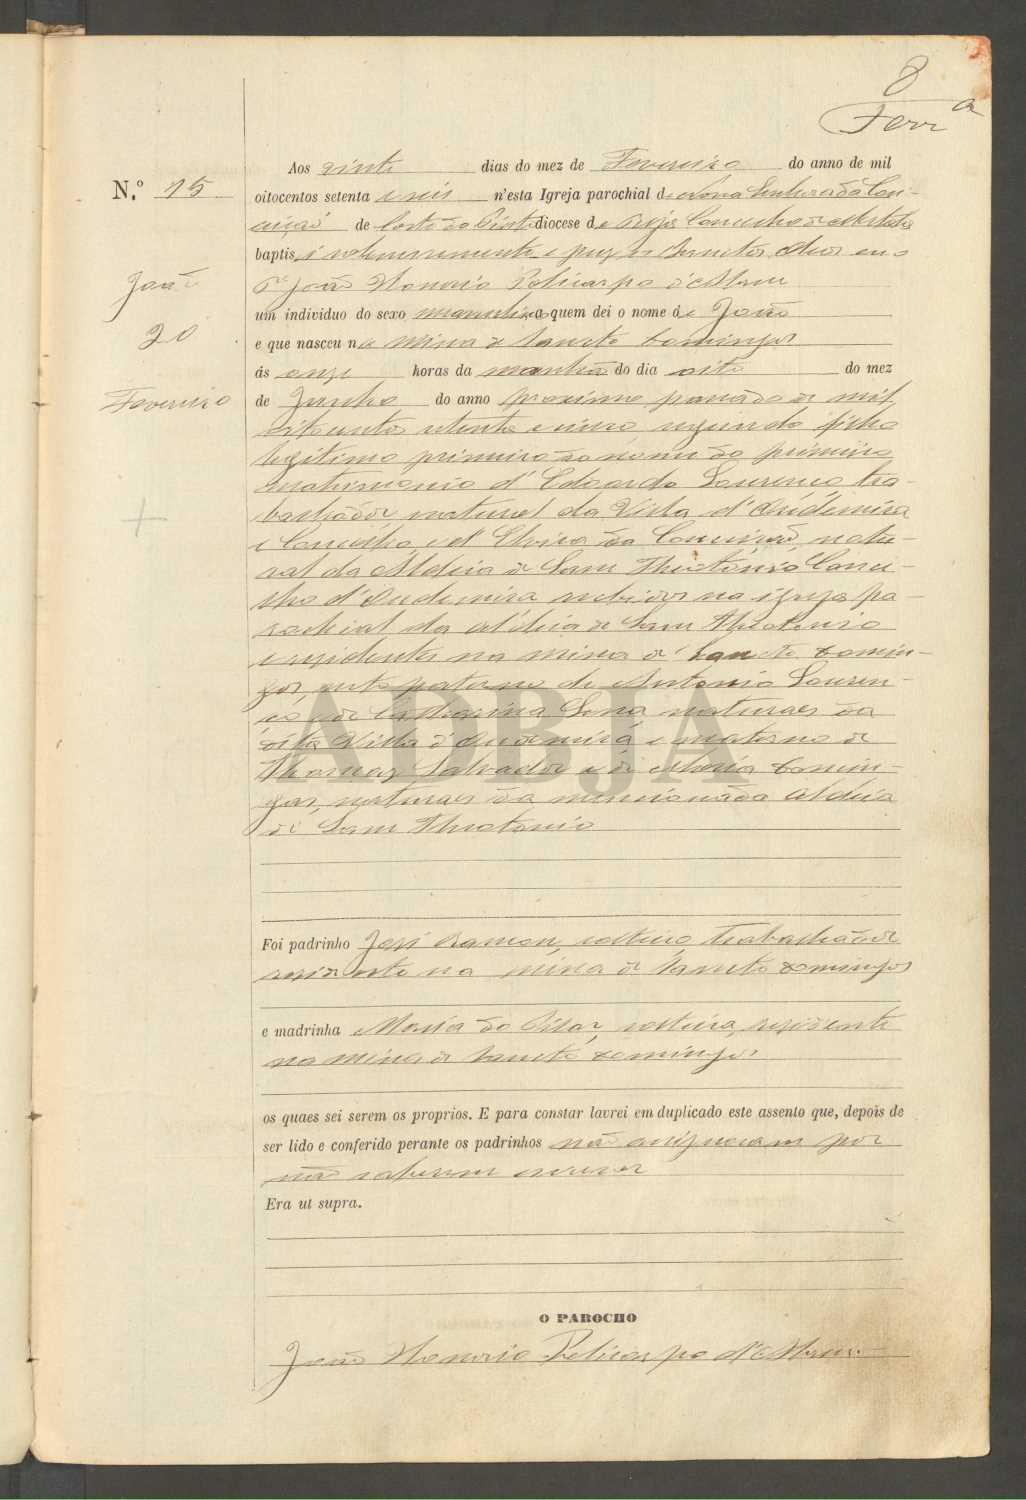 8
Ferr.ª
Aos vinte dias do mez de Fevereiro do anno de mil
N.º 15
oitocentos setenta e seis n'esta Igreja parochial de Nossa Senhora da Con-
ceição de Corte do Pinto diocese de Beja Concelho de Mertola
baptisei solemnemente e puz os Sanctos Oleos eu o
P.e João Honorio Policarpo d'
João
um individuo do sexo masculino a quem dei o nome de João
20
e que nasceu na mina de Sancto Domingos
ás onze horas da manhã do dia oito do mez
Fevereiro
de Junho do anno proximo passado de mil
oito centos setenta e cinco, segundo filho
legitimo primeiro do nome do primeiro
matrimonio d'Edoardo Lourenço tra-
balhador natural da Villa d'Audemira
e Concelho e d'Elvira da Conceição, natu-
ral da Aldeia de Sam Theotonio Conce-
lho d'Audemira recebidos na igreja pa-
rochial da aldeia de Sam Theotonio
e residentes na mina de Sancto Domin-
gos, neto paterno de Antonio Louren-
ço e de Catharina naturaes da
dita Villa d'Audemira e materno de
Thomaz Salvador e de Maria Domin-
gas, naturaes da mencionada aldeia
de Sam Theotonio
ADBJA
Foi padrinho José Ramon, solteiro trabalhador
residente na mina de Sancto Domingos
e madrinha Maria do Pilar, solteira, residente
na mina de Sancto Domingos
os quaes sei serem os proprios. E para constar lavrei em duplicado este assento que, depois de
ser lido e conferido perante os padrinhos não assignaram por
não saberem escrever
Era ut supra.
O PAROCHO
João Honorio Policarpo d'